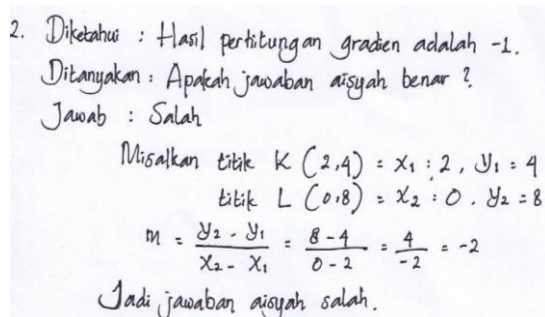 2. Diketahui : Hasil perhitungan gradien adalah -1.
Ditanyakan : Apakah jawaban aisyah benar ?
Jawab : Salah
Misalkan titik K (2,4) = x₁ : 2, y₁ = 4
titik L (0,8) = x₂ : 0. y₂ = 8
m = y₂ - y₁ / x₂ - x₁ = 8 - 4 / 0 - 2 = 4 / -2 = -2
Jadi jawaban aisyah salah.